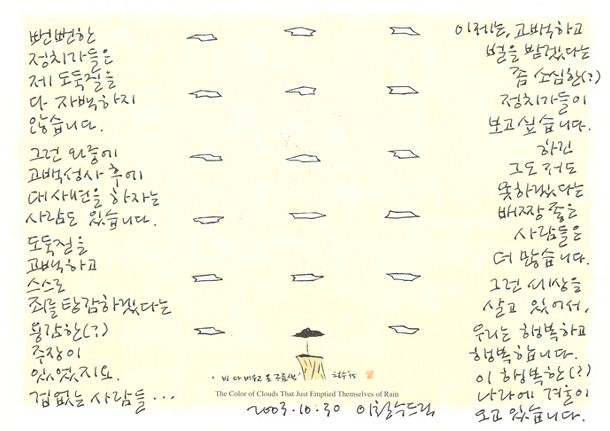 뻔뻔한
정치가들은
제 도둑질을
다 자백하지
않습니다.
그런 와중에
고백성사 후에
대사면을 하자는
사람도 있습니다.
도둑질을
고백하고
스스로
죄를 탕감하겠다는
용감한(?)
주장이
있었지요.
겁없는 사람들...
이제는, 고백하고
벌을 받겠다는
좀 소심한(?)
정치가들이
보고싶습니다.
하긴
그도 저도
못하겠다는
배짱 좋은
사람들은
더 많습니다.
그런 세상을
살고 있어서,
우리는 행복하고
행복합니다.
이 행복한(?)
나라에 겨울이
오고 있습니다.
'비 다 비우고 난 구름색' 철수 95
The Color of Clouds That Just Emptied Themselves of Rain
2003.10.30 이철수드림